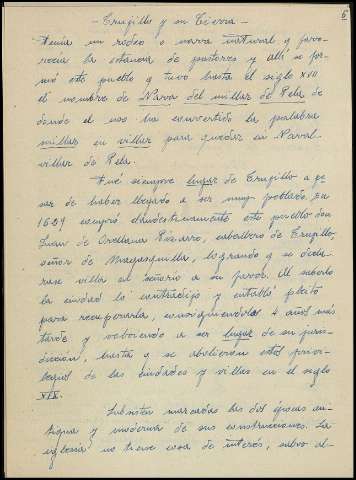 6
- Trugillo y su Tierra -
Tenía un rodeo o navra natural y favo-
recia la estancia de pastores y allí se for-
mó este pueblo y tuvo hasta el siglo XVII
el nombre de Nava del millar de Pela de
donde el uso ha convertido la palabra
millar en villar para quedar en Naval-
villar de Pela.
Fué siempre lugar de Trugillo a pe-
sar de haber llegado a ser muy poblado. En
1629 compró clandestinamente este pueblo don
Juan de Orellana Pizarro, caballero de Trugillo,
señor de Magasquilla, logrando q se decla-
rase villa el señorio a su favor. Al saberlo
la ciudad lo contradijo y entabló pleito
para recuperarla, consiguiendolo 4 años más
tarde y volviendo a ser lugar de su juris-
diccion, hasta q se abolieron estos privi-
legios de las ciudades y villas en el siglo
XIX.
Subsisten marcadas las dos épocas an-
tigua y moderna de sus construcciones. La
iglesia no tiene cosa de interés, salvo al-